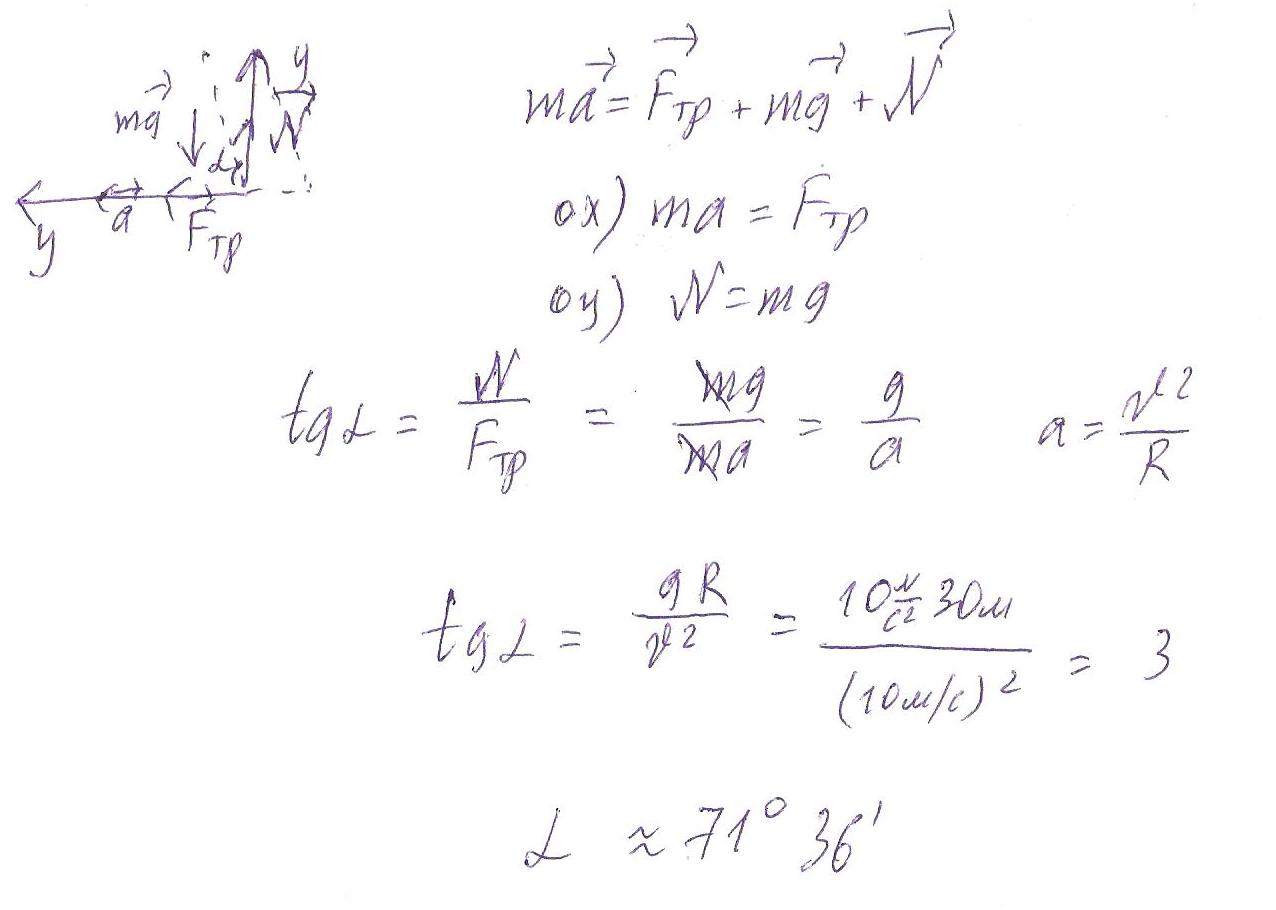 y
mg
N
α
a
Fтр
y
ma = Fтр + mg + N
ox) ma = Fтр
oy) N = mg
tgα = N/Fтр = mg/ma = g/a a = v²/R
tgα = gR/v² = 10 м/с² 30м/(10м/с)² = 3
α ≈ 71° 36'